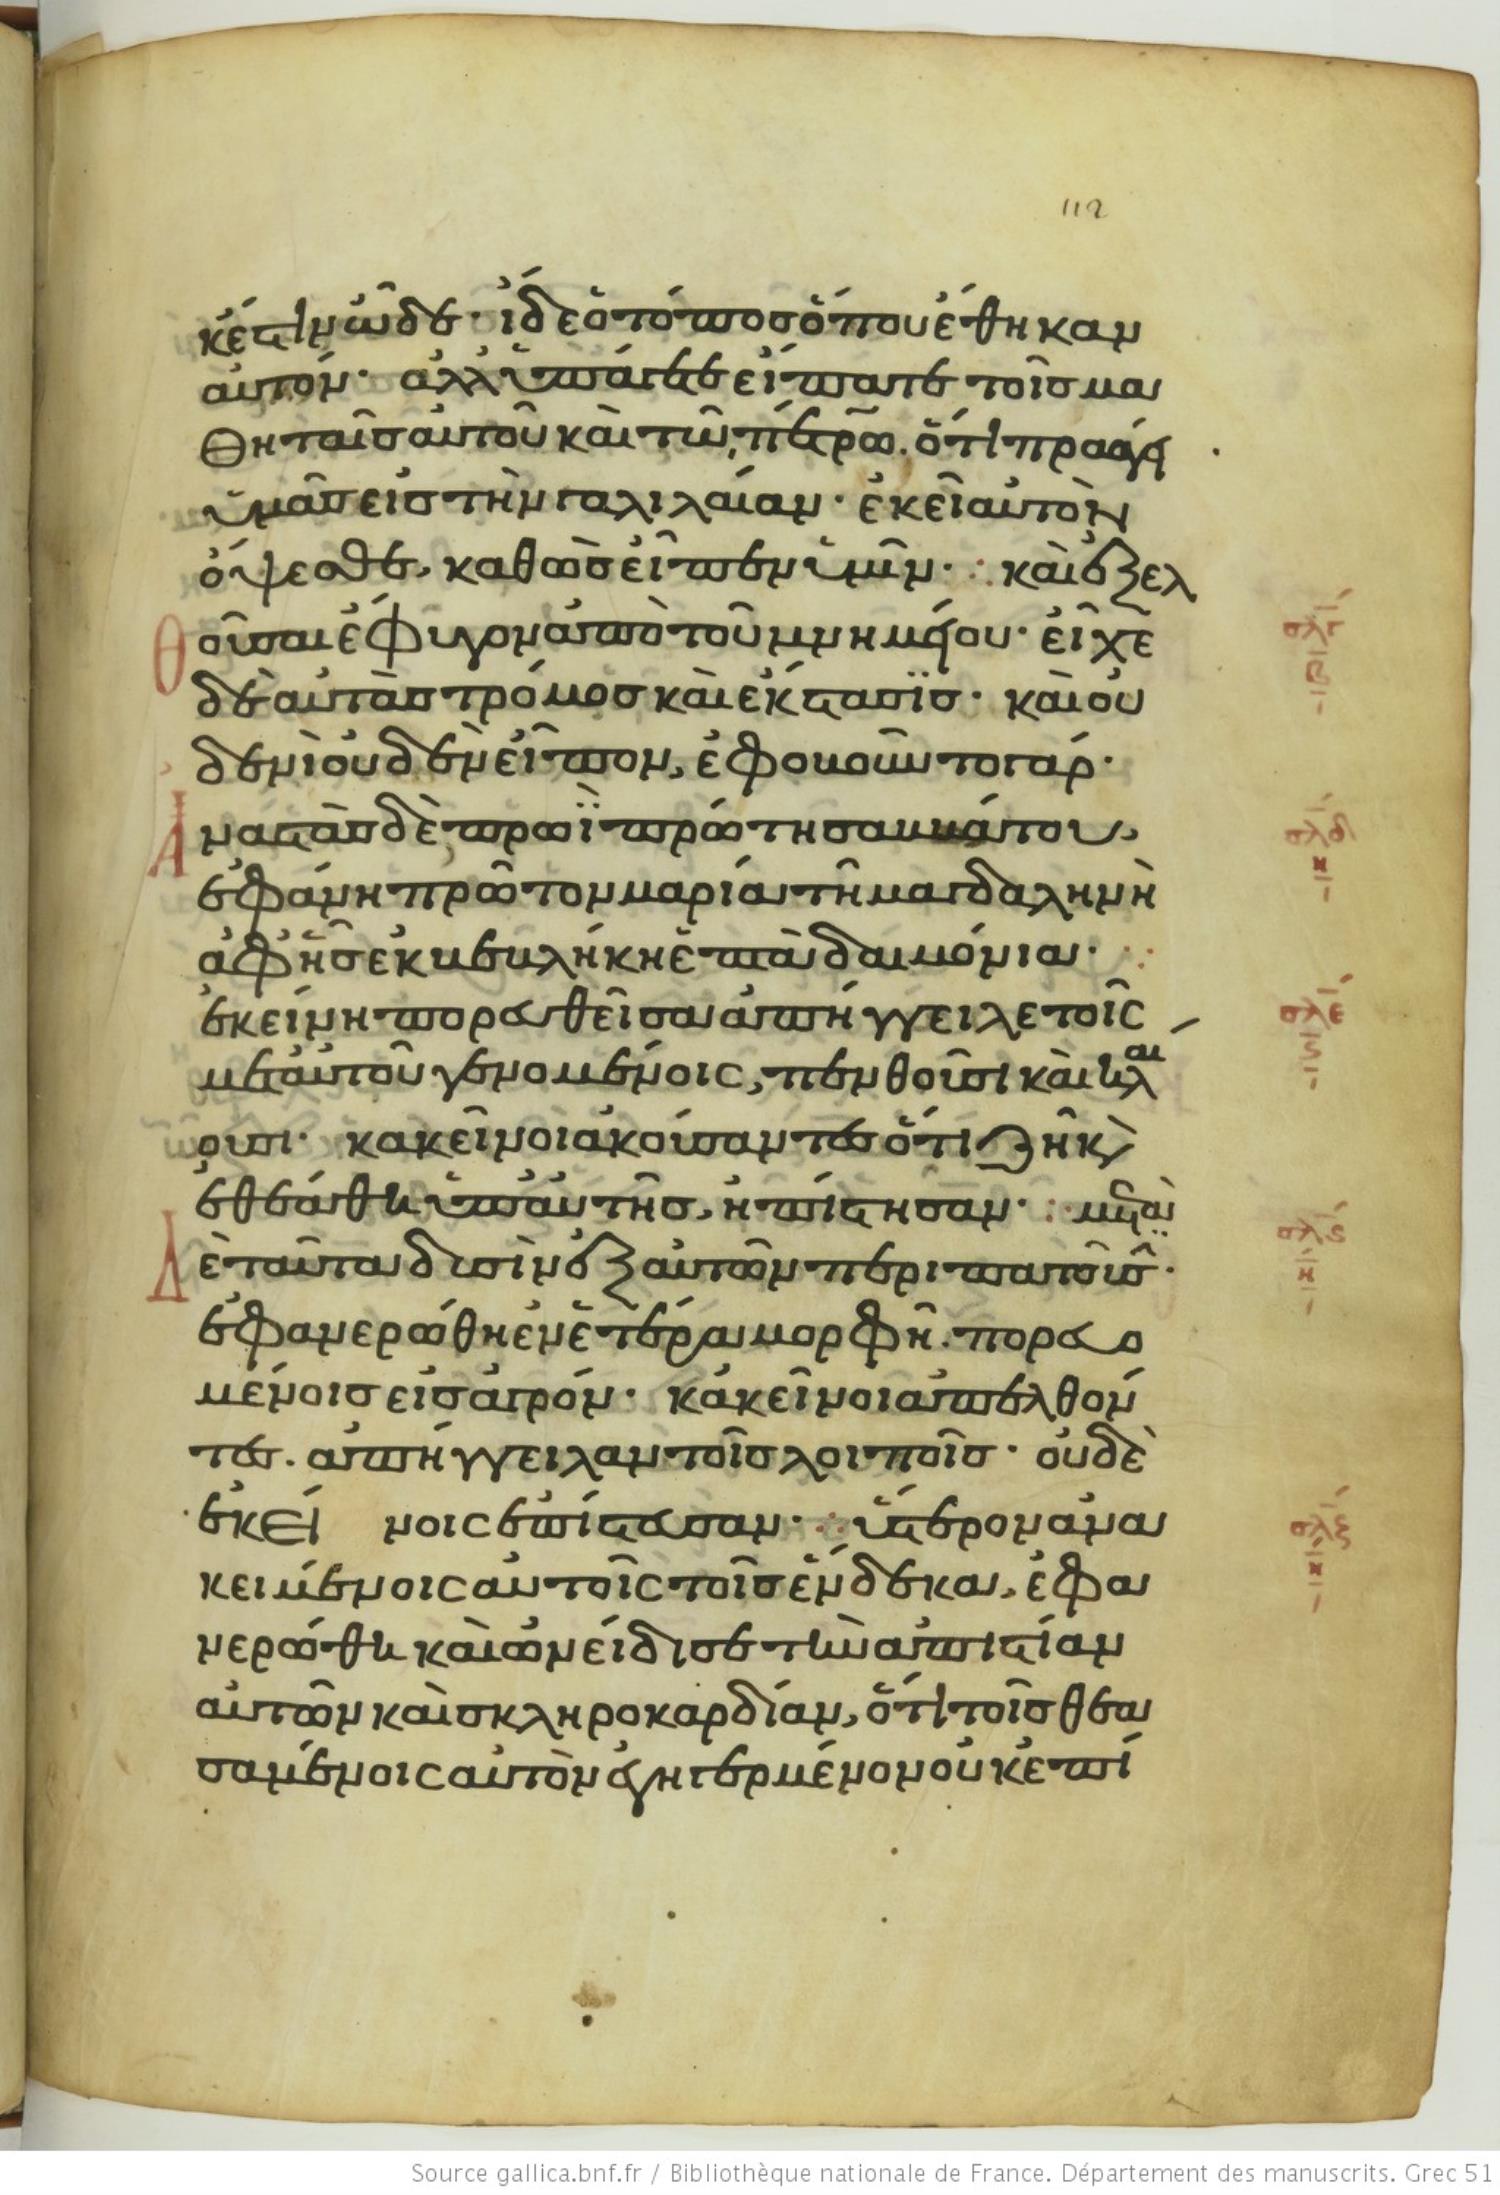 112
κέστιν ὧδε· ἴδε ὁ τόπος ὅπου ἔθηκαν
αυτόν· ἀλλ ὑπάγετε εἴπατε τοῖς μα
θηταῖς αυτοῦ καὶ τῶ πέτρω. ὅτι προάγει
ὑμᾶς εἰς τὴν γαλιλαίαν· ἐκεῖ αυτὸν
ὄψεσθε, καθὼς εἶπεν ὑμῖν· καὶ ἐξελ
θοῦσαι ἔφυγον ἀπὸ τοῦ μνημείου· εἶχε
δὲ αυτὰς τρόμος καὶ ἔκστασϊς· καὶ οὐ
δενὶ οὐδὲν εἶπον, ἐφοβοῦντο γάρ·
Ἀναστὰς δὲ πρωῒ πρώτη σαββάτου,
ἐφάνη πρῶτον μαρία τῆ μαγδαληνὴ
ἀφ ἧς ἐκβεβλήκη ἑπτὰ δαιμόνια·
ἐκείνη πορευθεῖσα ἀπήγγειλε τοῖς
μετ αὐτοῦ γενομένοις, πενθοῦσι καὶ κλαι
ουσι· κακεῖνοι ἀκούσαντες ὅτι ζῆ κὶ
ἐθεάθη ὑπ αὐτῆς, ἠπίστησαν· μετὰ
Δὲ ταῦτα δυσὶν ἐξ αυτῶν περιπατοῦσϊν·
ἐφανερώθη ἐν ἑτέρα μορφῆ. πορευο
μένοις εἰς ἀγρόν· κἀκεῖνοι ἀπελθόν
τες. ἀπήγγειλαν τοῖς λοιποῖς· οὐδὲ
ἐκεί νοις ἐπίστευσαν· ὕστερον ἀνα
κειμένοις αὐτοῖς τοῖς ἕνδεκα, ἐφα
νερώθη καὶ ὠνείδισε τὴν ἀπιστίαν
αὐτῶν καὶ σκληροκαρδίαν, ὅτι τοῖς θεα
σαμένοις αὐτὸν ἐγηγερμένον οὐκ ἐπί
σλγ
β
σλδ
η
σλε
σλς
η
σλζ
Source gallica.bnf.fr / Bibliothèque nationale de France. Département des manuscrits. Grec 51